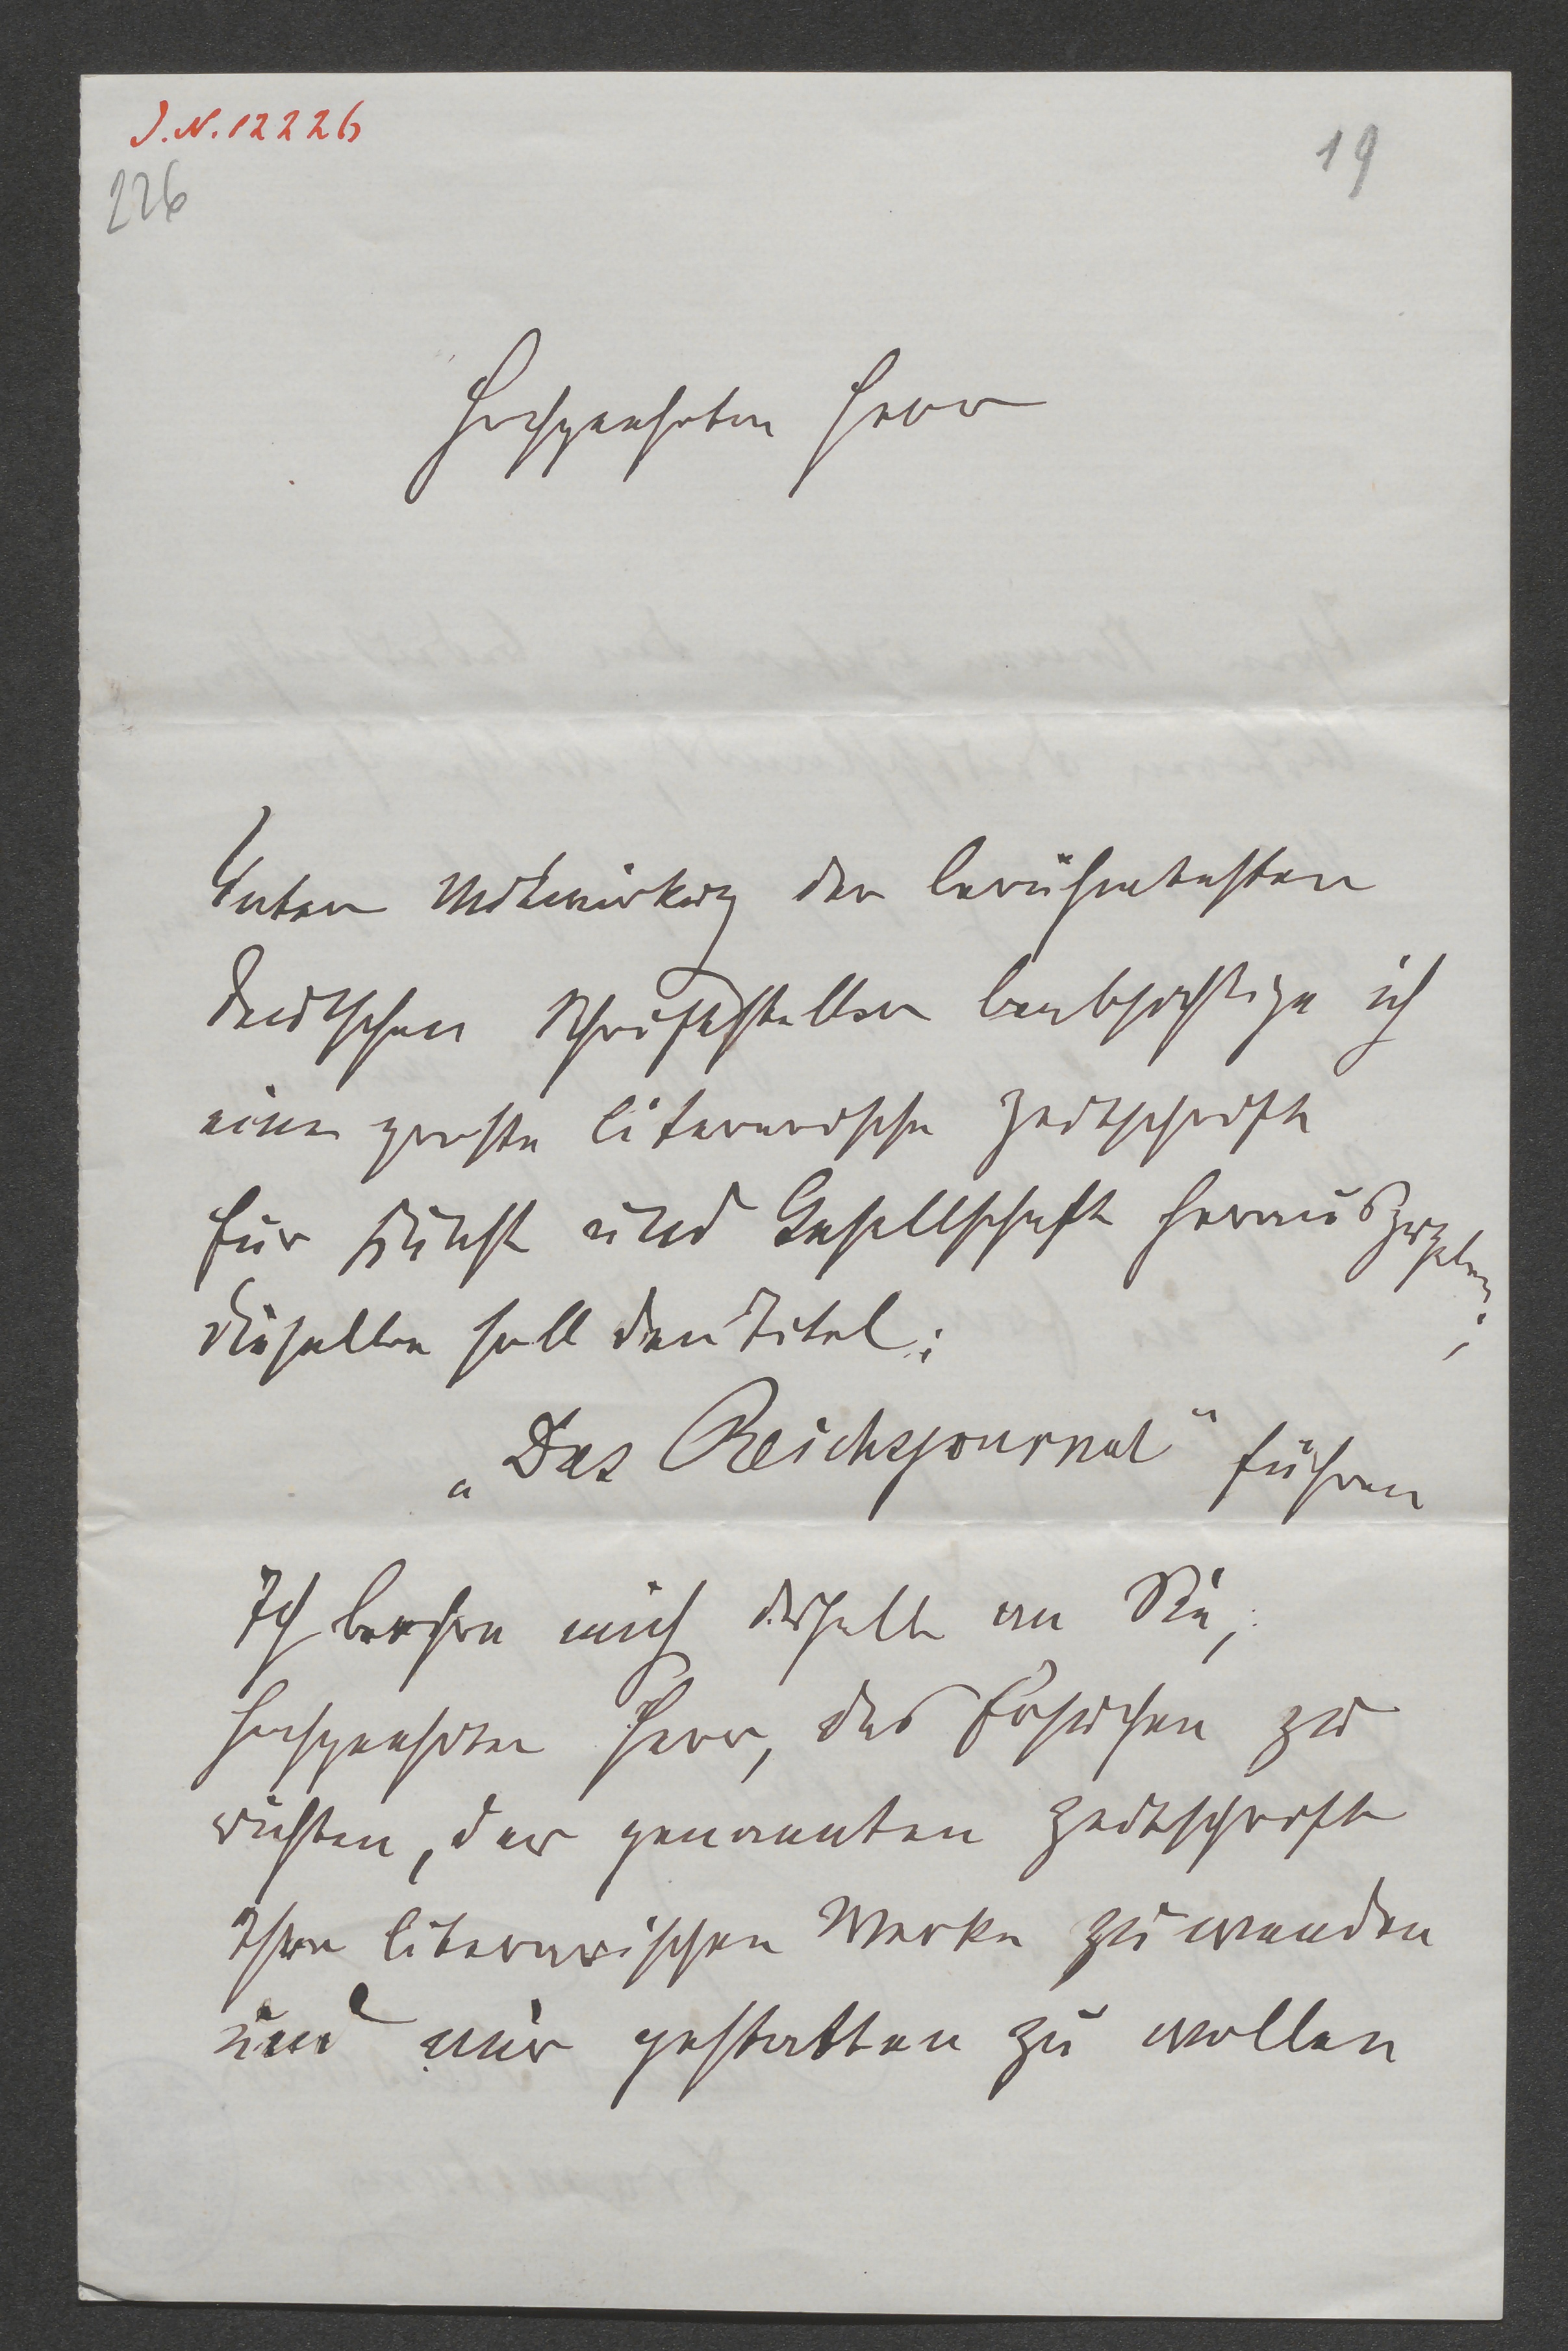 J.N. 12226
19
226
Hochgeehrter Herr
Unter Mitwirkung der berühmtesten
deutschen Schriftsteller beabsichtige ich
eine große literarische Zeitschrift
für Kunst und Gesellschaft herauszugeben;
dieselbe soll den Titel:
„Das Reichsjournal“ führen
Ich beehre mich deshalb an Sie,
hochgeehrter Herr, das Ersuchen zu
richten, der genannten Zeitschrift
Ihre literarischen Werke zuwenden
und mir gestatten zu wollen